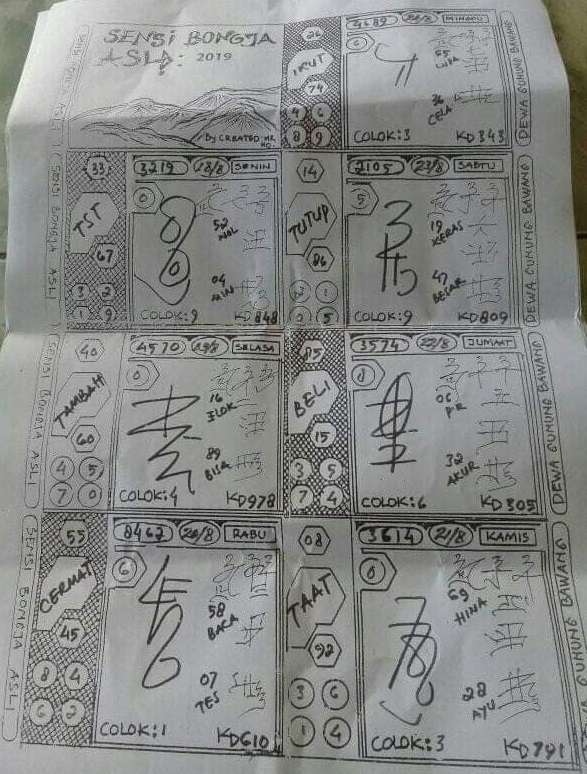 SENSI BONGJA
ASLI: 2019
By CREATED: MR. MO.
SENSI BONGJA ASLI
26
IRUT
74
4 6
8 9
4689 24/8 MINGGU
6
55
LUPA
36
CELA
COLOK: 3 KD 343
DEWA GUNUNG BAWANG
SENSI BONGJA ASLI
33
TST
67
3 2
1 9
3219 18/8 SENIN
0
52
NOL
04
MIN
COLOK: 9 KD 848
14
TUTUP
86
2 1
0 5
2105 23/8 SABTU
5
19
KERAS
47
BESAR
COLOK: 9 KD 809
DEWA GUNUNG BAWANG
SENSI BONGJA ASLI
40
TAMBAH
60
4 5
7 0
4570 19/8 SELASA
0
16
ELOK
89
BISA
COLOK: 4 KD 978
85
BELI
15
3 5
7 4
3574 22/8 JUMAAT
06
PR
32
AKUR
COLOK: 6 KD 305
DEWA GUNUNG BAWANG
SENSI BONGJA ASLI
55
CERMAT
45
8 4
6 2
8462 20/8 RABU
6
58
BACA
07
TES
COLOK: 1 KD 610
08
TAAT
92
3 6
1 4
3614 21/8 KAMIS
69
HINA
28
AYU
COLOK: 3 KD 791
DEWA GUNUNG BAWANG